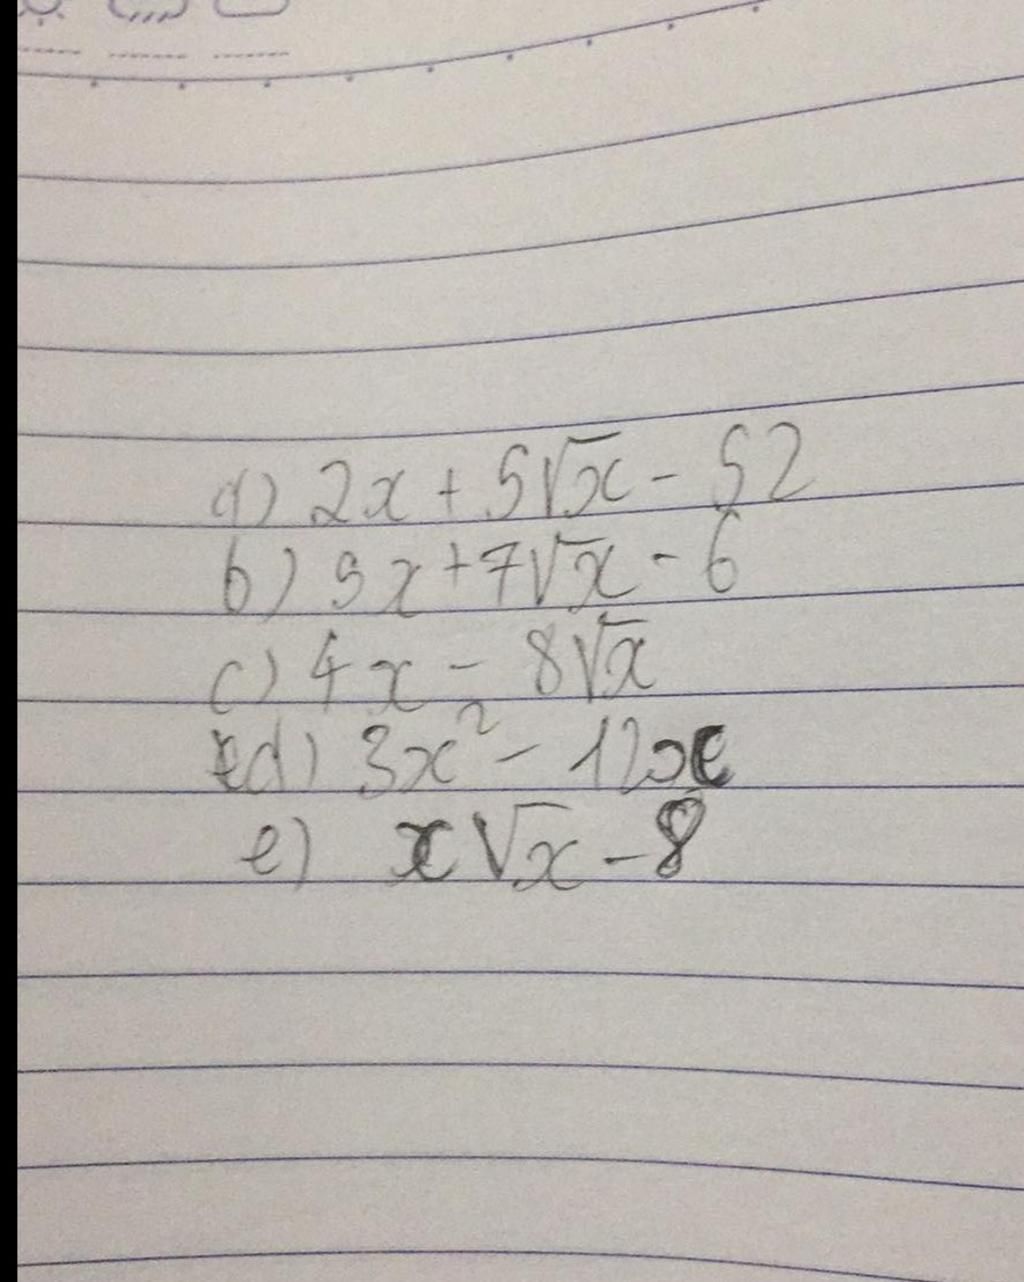 a) 2x + 5√x - 52
b) 3x + 7√x - 6
c) 4x - 8√x
d) 3x² - 12x
e) x√x - 8